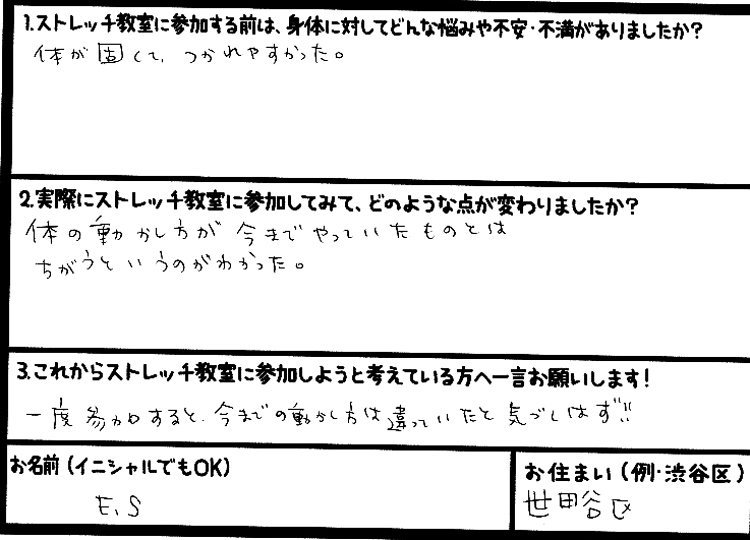 1.ストレッチ教室に参加する前は、身体に対してどんな悩みや不安・不満がありましたか?
体が固くて、つかれやすかった。
2.実際にストレッチ教室に参加してみて、どのような点が変わりましたか?
体の動かし方が今までやっていたものとは
ちがうというのがわかった。
3.これからストレッチ教室に参加しようと考えている方へ一言お願いします!
一度参加すると、今までの動かし方は違っていたと気づくはず!!
お名前(イニシャルでもOK)
E.S
お住まい(例・渋谷区)
世田谷区